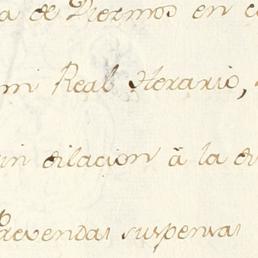 a de Diezmos en c
mi Real Horario,
in dilacion à la di
Prevendas suspensas